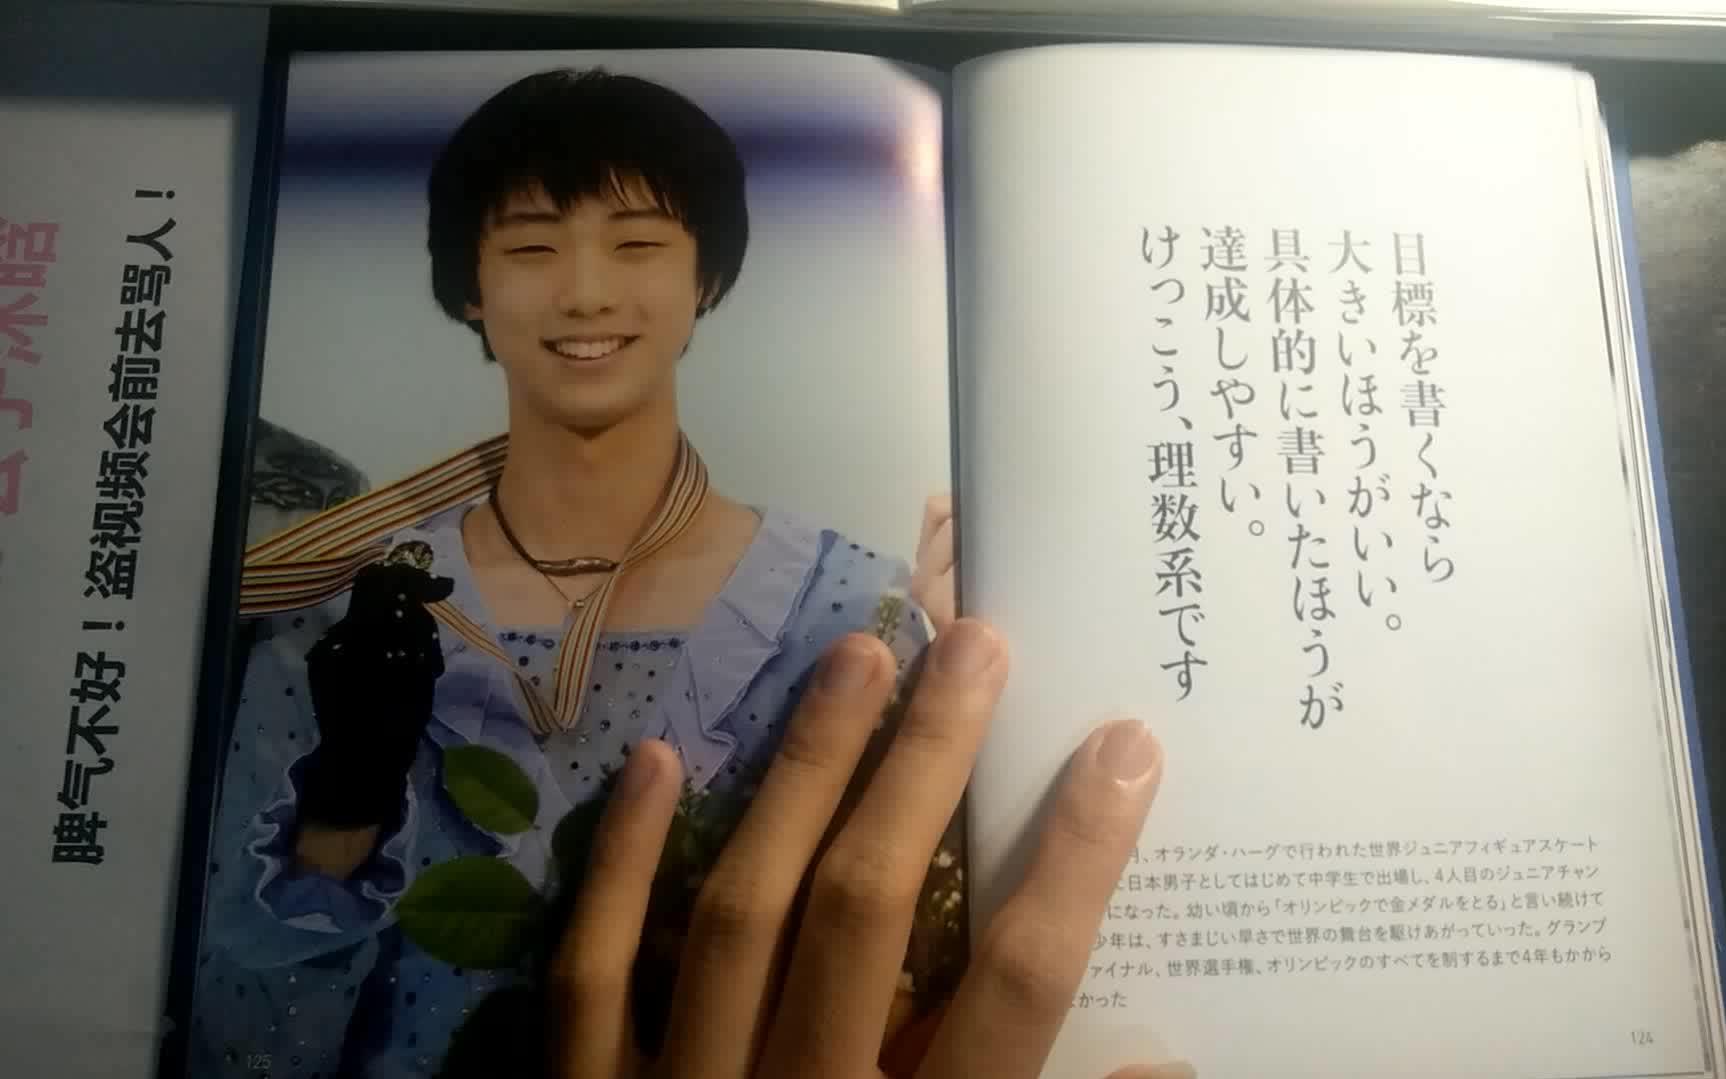 目標を書くなら
大きいほうがいい。
具体的に書いたほうが
達成しやすい。
けっこう、理数系です
月、オランダ・ハーグで行われた世界ジュニアフィギュアスケート
に日本男子としてはじめて中学生で出場し、4人目のジュニアチャン
になった。幼い頃から「オリンピックで金メダルをとる」と言い続けて
少年は、すさまじい早さで世界の舞台を駆けあがっていった。グランプ
ァイナル、世界選手権、オリンピックのすべてを制するまで4年もかから
かった
124
125
脾气不好！盗视频会前去骂人！